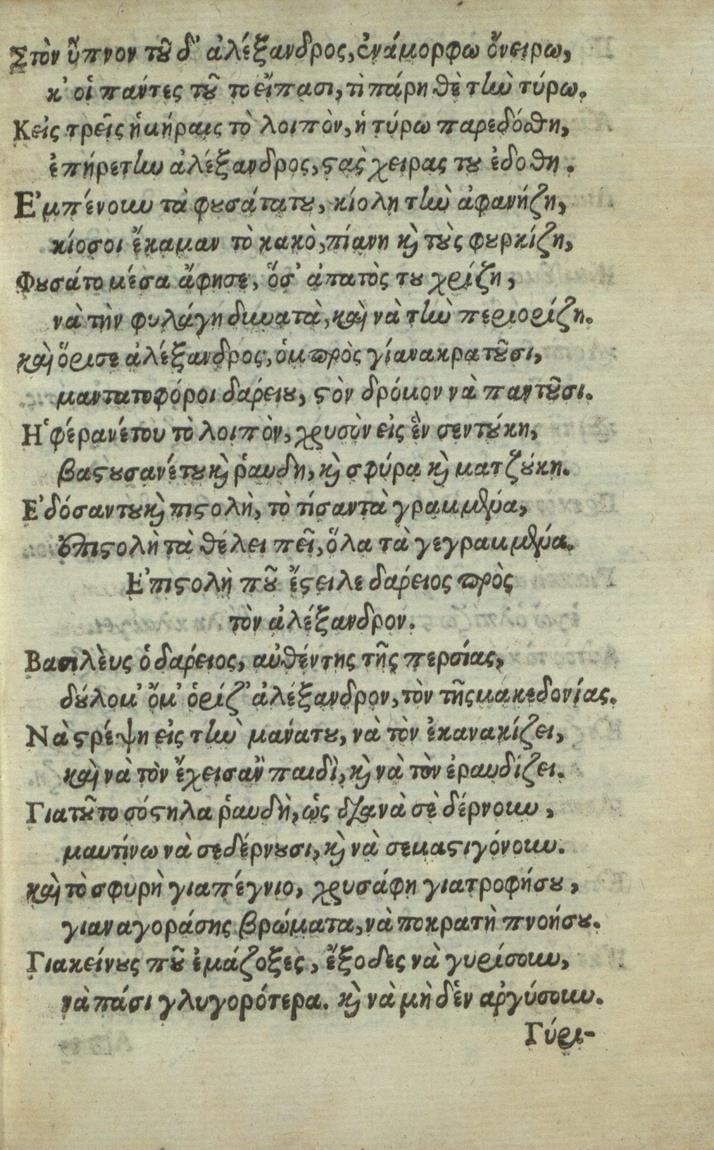 Στὸν ὕπνον τοῦ δ' ἀλέξανδρος, ἐνάμορφω ὄνειρω,
κ' οἱ πάντες τοῦ τὸ εἴπασι, τὶ πάρη θὲ τὴν τύρω.
Κεἰς τρεῖς ἡμήραις τὸ λοιπὸν, ἡ τύρω παρεδόθη,
ἐπήρετην ἀλέξανδρος, στὰς χειρας του ἐδοθη.
Ἐμπένουν τὰ φουσάτατου, κιολη τὴν ἀφανήζη,
κίοσοι ἔκαμαν τὸ κακὸ, πίανη καὶ τοὺς φουρκίζη,
Φουσάτο μέσα ἄφησε, ὅσ' ἀπατὸς του χρίζη,
νὰ τὴν φυλάγη δυνατὰ, καὶ νὰ τὴν περιορίζη.
καὶ ὅρισε ἀλέξανδρος, ὀμπρὸς γίανακρατοῦσι,
μαντατοφόροι δαρείου, στὸν δρόμον νὰ παντοῦσι.
Ἡ φέρανέτου τὸ λοιπὸν, χρυσὸν εἰς ἓν σεντούκη,
βαστουσανέτου καὶ ῥαυδὴ, καὶ σφύρα καὶ ματζούκη.
Ἐδόσαντου καὶ πιστολὴ, τὸ τίσαντα γραμμένα,
ἡ πιστολὴ τὰ θέλει πεῖ, ὅλα τὰ γεγραμμένα.
Ἐπιστολὴ ποῦ ἔστειλε δαρειος πρὸς
τὸν ἀλέξανδρον.
Βασιλεὺς ὁ δαρειος, αὐθέντης τῆς περσίας,
δούλομ' ὅμ' ὁρίζ' ἀλέξανδρον, τὸν τῆς μακεδονίας.
Νὰ στρέψη εἰς τὴν μάνατου, νὰ τὸν ἐκανακίζει,
καὶ νὰ τὸν ἔχεισαν παιδὶ, καὶ νὰ τὸν ἐραυδίζει.
Γιατοῦτο σόστηλα ῥαυδὴ, ὡς διὰ νὰ σὲ δέρνουν,
μαυτίνω νὰ σεδέρνουσι, καὶ νὰ σεμαστιγόνουν.
καὶ τὸ σφυρὴ γιαπέγνιο, χρυσάφη γιατροφήσου,
γιαν αγοράσης βρώματα, νὰ ποκρατὴ πνοήσου.
Γιακείνους ποῦ ἐμάζοξες, ἔξοδες νὰ γυρίσουν,
νὰ πάσι γλυγορότερα. καὶ νὰ μὴ δὲν αργύσουν.
Γύρι-